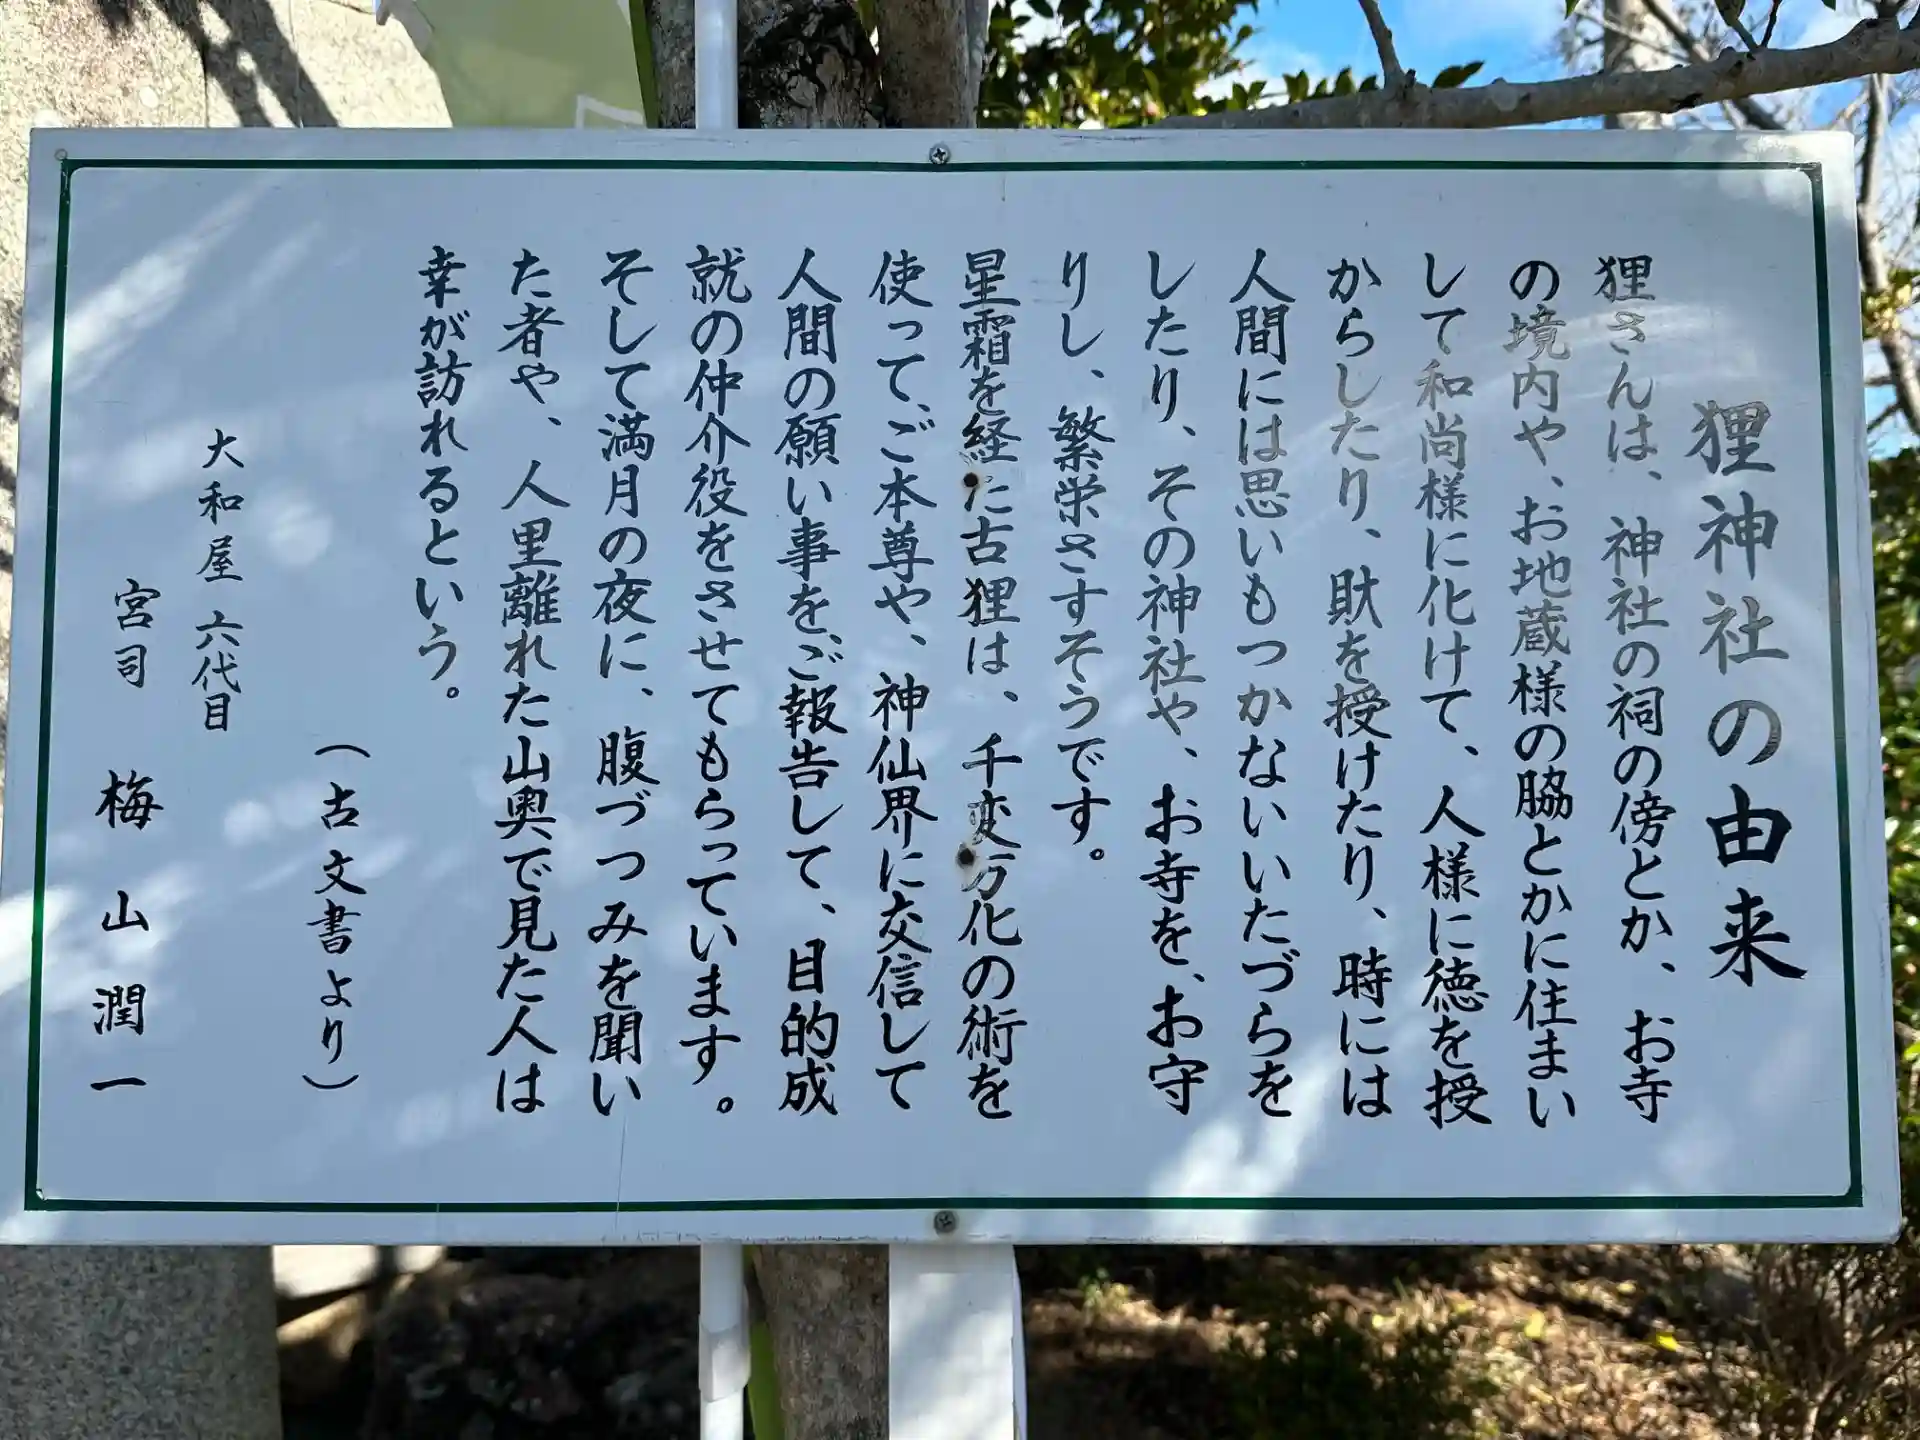 狸神社の由来
狸さんは、神社の祠の傍とか、お寺
の境内や、お地蔵様の脇とかに住まい
して和尚様に化けて、人様に徳を授
からしたり、財を授けたり、時には
人間には思いもつかないいたづらを
したり、その神社や、お寺を、お守
りし、繁栄さすそうです。
星霜を経た古狸は、千変万化の術を
使って、ご本尊や、神仙界に交信して
人間の願い事を、ご報告して、目的成
就の仲介役をさせてもらっています。
そして満月の夜に、腹づつみを聞い
た者や、人里離れた山奥で見た人は
幸が訪れるという。
(古文書より)
大和屋 六代目
宮司 梅山潤一